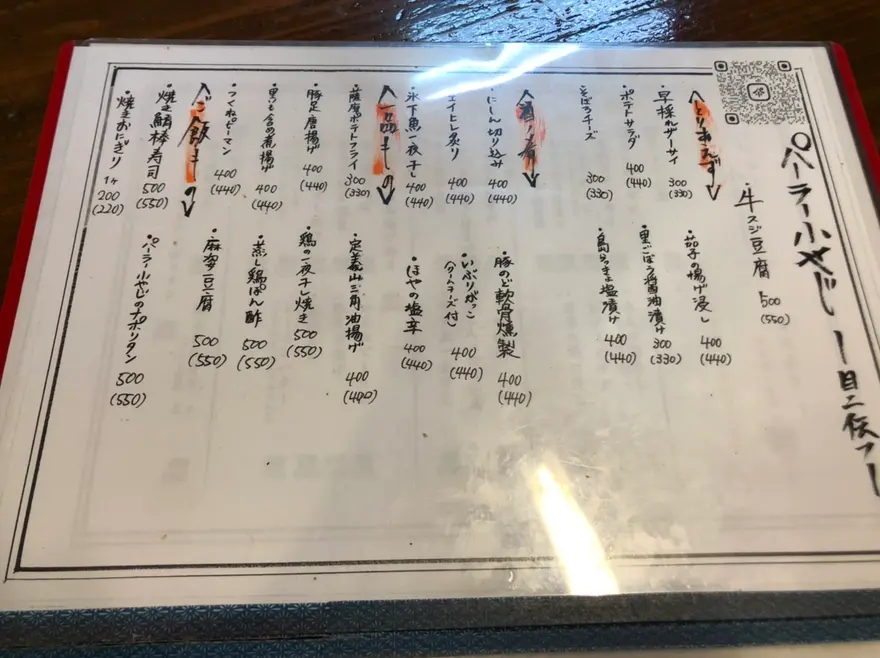 パーラー小やじ
・牛スジ豆腐 500 (550)
へとりあえず
・早採れザーサイ 300 (330)
・ポテトサラダ 400 (440)
・そぼろチーズ 300 (330)
・茄子の揚げ浸し 400 (440)
・里ごぼう醤油漬け 300 (330)
・島らっきょ塩漬け 400 (440)
酒ノ肴
・にしん切り込み 400 (440)
・エイヒレ炙り 400 (440)
・氷下魚一夜干し 400 (440)
・豚のど軟骨燻製 400 (440)
・いぶりがっこ (クリームチーズ付) 400 (440)
・ほやの塩辛 400 (440)
一品もの
・薩摩ポテトフライ 300 (330)
・豚足唐揚げ 400 (440)
・里いも含め煮揚げ 400 (440)
・つくねピーマン 400 (440)
・定義山三角油揚げ 400 (400)
・鶏の一夜干し焼き 500 (550)
・蒸し鶏ぽん酢 500 (550)
・麻婆豆腐 500 (550)
ご飯もの
・焼き鯖棒寿司 500 (550)
・焼きおにぎり 1ケ 200 (220)
・パーラー小やじのナポリタン 500 (550)